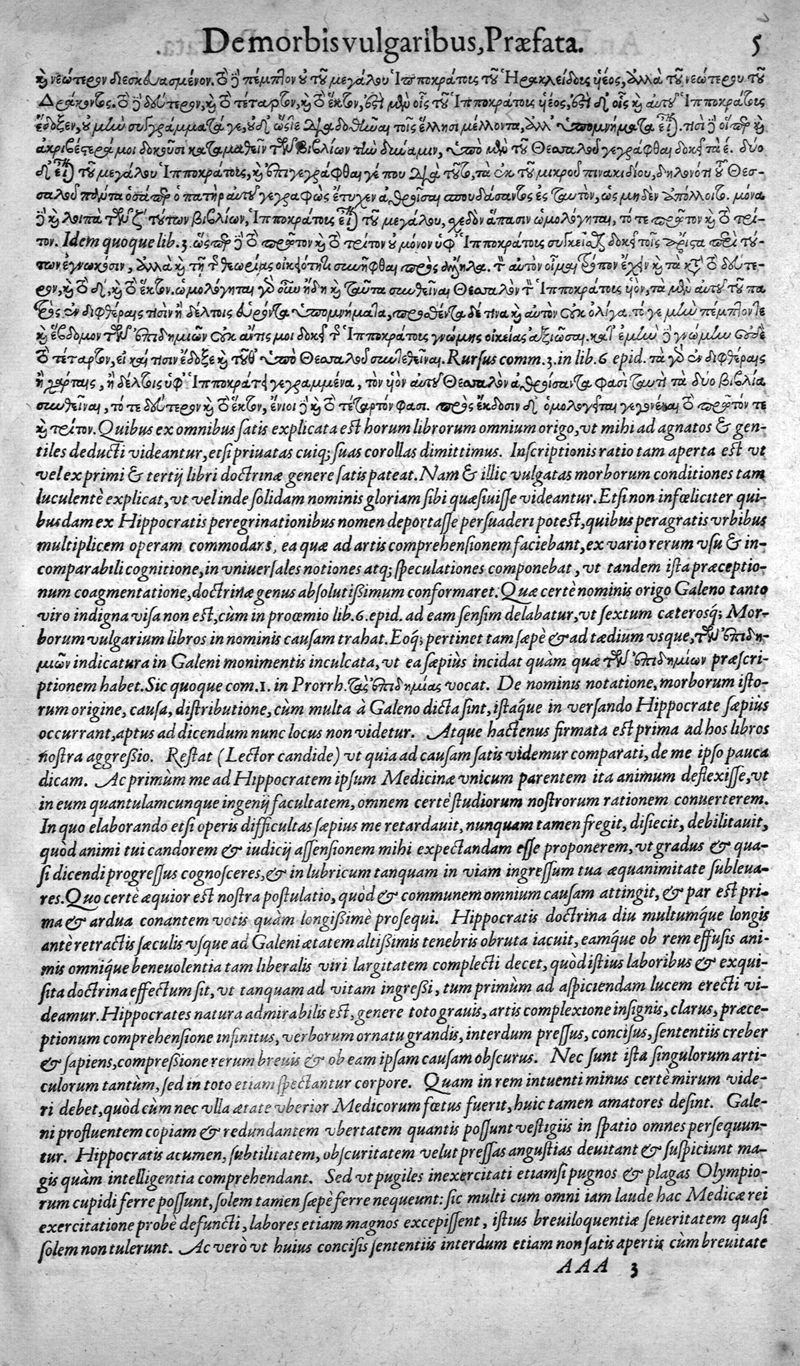 De morbis vulgaribus, Præfata. 5
καὶ νεώτερον διεσκευασμένον. τὸ δὲ πέμπτον οὐ τοῦ μεγάλου Ἱπποκράτους τοῦ Ἡρακλείδους υἱέος, ἀλλὰ τοῦ νεωτέρου τοῦ
Δράκοντος. τὸ δὲ δεύτερον, καὶ τὸ τέταρτον, καὶ τὸ ἕκτον,
ἔδοξεν, οὐ μὴν συγγράμματά γε,
ἀκριβέστερά μοι δοκοῦσι καταμαθεῖν τῶν βιβλίων τὴν δύναμιν, ὑπὸ μὲν τοῦ Θεσσαλοῦ γεγράφθαι δοκεῖ τὰ ε. δύο
δ' εἶναι τοῦ μεγάλου Ἱπποκράτους, καὶ ἐπιγεγράφθαί γέ που διὰ τοῦτο, τὰ ἐκ τοῦ μικροῦ πινακιδίου, δηλονότι τοῦ Θεσ-
σαλοῦ
καὶ λοιπὰ τῶν ζ τούτων βιβλίων, Ἱπποκράτους εἶναι τοῦ μεγάλου, σχεδὸν ἅπασιν ὡμολόγηται, τό τε πρῶτον καὶ τὸ τρί-
τον. Idem quoque lib. 3. ὥσπερ δὲ τὸ πρῶτον καὶ τὸ τρίτον οὐ μόνον ὑφ' Ἱπποκράτους
των ἐγνωκόσιν, ἀλλὰ καὶ
ρον, καὶ τὸ δ, καὶ τὸ ἕκτον. ὡμολόγηται γὰρ οὖν ἤδη καὶ ταῦτα συνθεῖναι Θεσσαλὸν τὸν Ἱπποκράτους υἱὸν, τὰ μὲν αὐτοῦ τοῦ πα-
τρὸς ἐν διφθέραις τισὶν ἢ δέλτοις εὑρόντα ὑπομνήματα, προσθέντα δέ τινα καὶ αὐτὸν οὐκ ὀλίγα. τό γε μὴν πέμπτόν τε
καὶ ἕβδομον τῶν ἐπιδημιῶν οὐκ ἄν τίς μοι δοκεῖ τῆς Ἱπποκράτους γνώμης οἰκείας ἀξιῶσαι. κατ' ἐμὴν δὲ γνώμην οὐδὲ
τὸ τέταρτον, εἰ καί τισιν ἔδοξε καὶ τοῦθ' ὑπὸ Θεσσαλοῦ συντεθεῖναι. Rursus comm. 3. in lib. 6 epid. τὰ γὰρ ἐν διφθέραις
ἢ χάρταις, ἢ δέλτοις ὑφ' Ἱπποκράτους γεγραμμένα, τὸν υἱὸν αὐτοῦ Θεσσαλὸν ἀθροίσαντά φασι ταυτὶ τὰ δύο βιβλία
συνθεῖναι, τό τε δεύτερον καὶ τὸ ἕκτον, ἔνιοι δὲ καὶ τὸ τέταρτόν φασι. πρὸς ἔκδοσιν δ' ὁμολογεῖται γεγονέναι τὸ πρῶτόν τε
καὶ τρίτον. Quibus ex omnibus satis explicata est horum librorum omnium origo, vt mihi ad agnatos & gen-
tiles deducti videantur, etsi priuatas cuiq; suas corollas dimittimus. Inscriptionis ratio tam aperta est vt
vel ex primi & tertij libri doctrinæ genere satis pateat. Nam & illic vulgatas morborum conditiones tam
luculentè explicat, vt vel inde solidam nominis gloriam sibi quæsiuisse videantur. Etsi non infœliciter qui-
busdam ex Hippocratis peregrinationibus nomen deportasse persuaderi potest, quibus peragratis vrbibus
multiplicem operam commodans, ea quæ ad artis comprehensionem faciebant, ex vario rerum vsu & in-
comparabili cognitione, in vniuersales notiones atq; speculationes componebat, vt tandem ista præceptio-
num coagmentatione, doctrinæ genus absolutißimum conformaret. Quæ certè nominis origo Galeno tanto
viro indigna visa non est, cùm in proœmio lib. 6. epid. ad eam sensim delabatur, vt sextum cæterosq; Mor-
borum vulgarium libros in nominis causam trahat. Eoq; pertinet tam sæpè & ad tædium vsque, τῶν ἐπιδη-
μιῶν indicatura in Galeni monimentis inculcata, vt ea sæpiùs incidat quàm quæ τῶν ἐπιδημίων præscri-
ptionem habet. Sic quoque com. 1. in Prorrh. τὰς ἐπιδημίας vocat. De nominis notatione, morborum isto-
rum origine, causa, distributione, cùm multa à Galeno dicta sint, istaque in versando Hippocrate sæpius
occurrant, aptus ad dicendum nunc locus non videtur. Atque hactenus firmata est prima ad hos libros
nostra aggreßio. Restat (Lector candide) vt quia ad causam satis videmur comparati, de me ipso pauca
dicam. Ac primùm me ad Hippocratem ipsum Medicinæ vnicum parentem ita animum deflexisse, vt
in eum quantulamcunque ingenij facultatem, omnem certè studiorum nostrorum rationem conuerterem.
In quo elaborando etsi operis difficultas sæpius me retardauit, nunquam tamen fregit, disiecit, debilitauit,
quòd animi tui candorem & iudicij assensionem mihi expectandam esse proponerem, vt gradus & qua-
si dicendi progressus cognosceres, & in lubricum tanquam in viam ingressum tua æquanimitate subleua-
res. Quo certè æquior est nostra postulatio, quòd & communem omnium causam attingit, & par est pri-
ma & ardua conantem votis quàm longißimè prosequi. Hippocratis doctrina diu multumque longis
antè retractis sæculis vsque ad Galeni ætatem altißimis tenebris obruta iacuit, eamque ob rem effusis ani-
mis omnique beneuolentia tam liberalis viri largitatem complecti decet, quòd istius laboribus & exqui-
sita doctrina effectum sit, vt tanquam ad vitam ingreßi, tum primùm ad aspiciendam lucem erecti vi-
deamur. Hippocrates natura admirabilis est, genere toto grauis, artis complexione insignis, clarus, præce-
ptionum comprehensione infinitus, verborum ornatu grandis, interdum pressus, concisus, sententiis creber
& sapiens, compreßione rerum breuis & ob eam ipsam causam obscurus. Nec sunt ista singulorum arti-
culorum tantùm, sed in toto etiam spectantur corpore. Quam in rem intuenti minus certè mirum vide-
ri debet, quòd cùm nec vlla ætate vberior Medicorum fœtus fuerit, huic tamen amatores desint. Gale-
ni profluentem copiam & redundantem vbertatem quantis possunt vestigiis in spatio omnes persequun-
tur. Hippocratis acumen, subtilitatem, obscuritatem velut pressas angustias deuitant & suspiciunt ma-
gis quàm intelligentia comprehendant. Sed vt pugiles inexercitati etiamsi pugnos & plagas Olympio-
rum cupidi ferre possunt, solem tamen sæpè ferre nequeunt: sic multi cum omni iam laude hac Medicæ rei
exercitatione probè defuncti, labores etiam magnos excepissent, istius breuiloquentiæ seueritatem quasi
solem non tulerunt. Ac verò vt huius concisis sententiis interdum etiam non satis apertis cùm breuitate
AAA 3